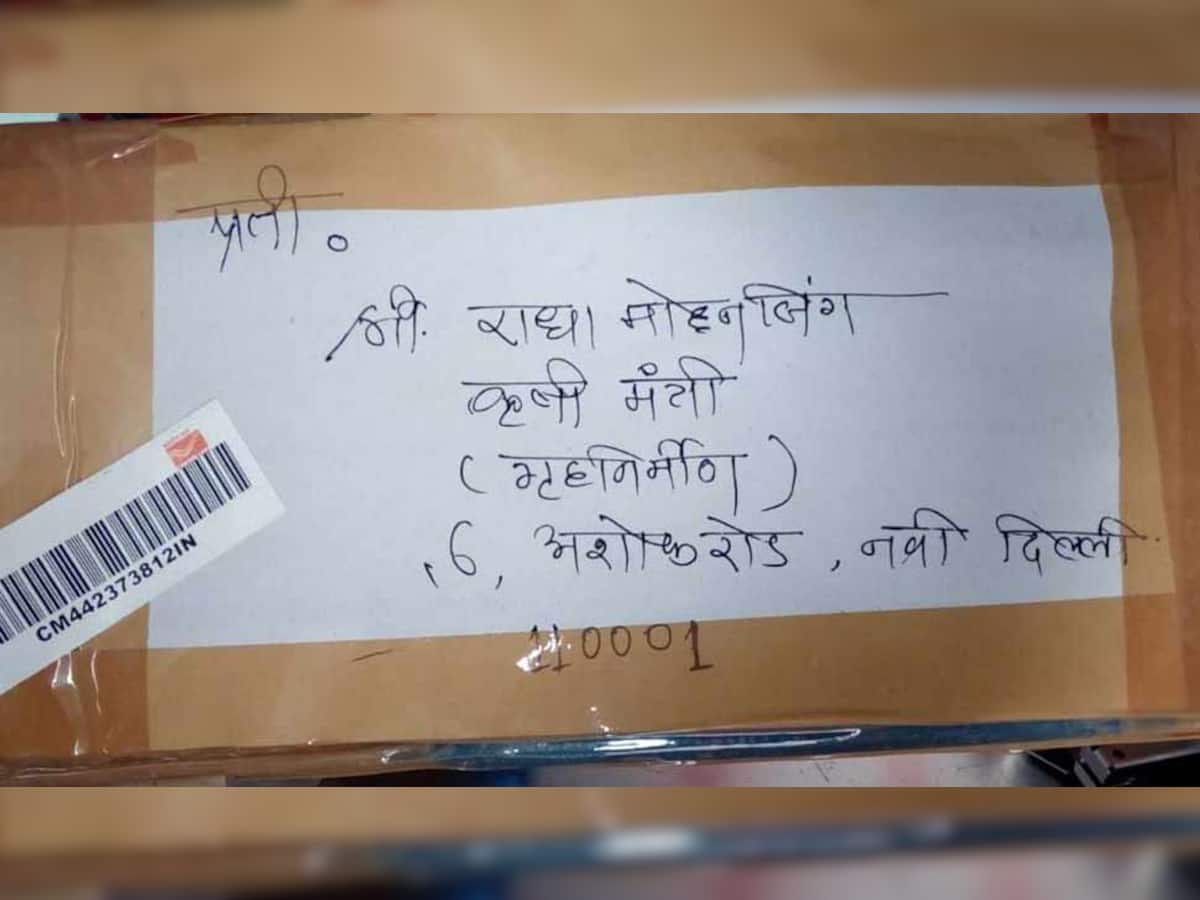 प्रती.
श्री. राधा मोहनसिंग
कृषी मंत्री
(गृहनिर्माण)
6, अशोक रोड, नवी दिल्ली.
110001
CM442373812IN